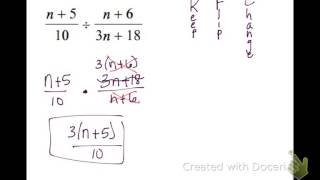 n + 5 / 10 ÷ n + 6 / 3n + 18
Keep
Flip
Change
3(n+6)
n+5 / 10 · 3n+18 / n+6
3(n+5) / 10
Created with Doceri